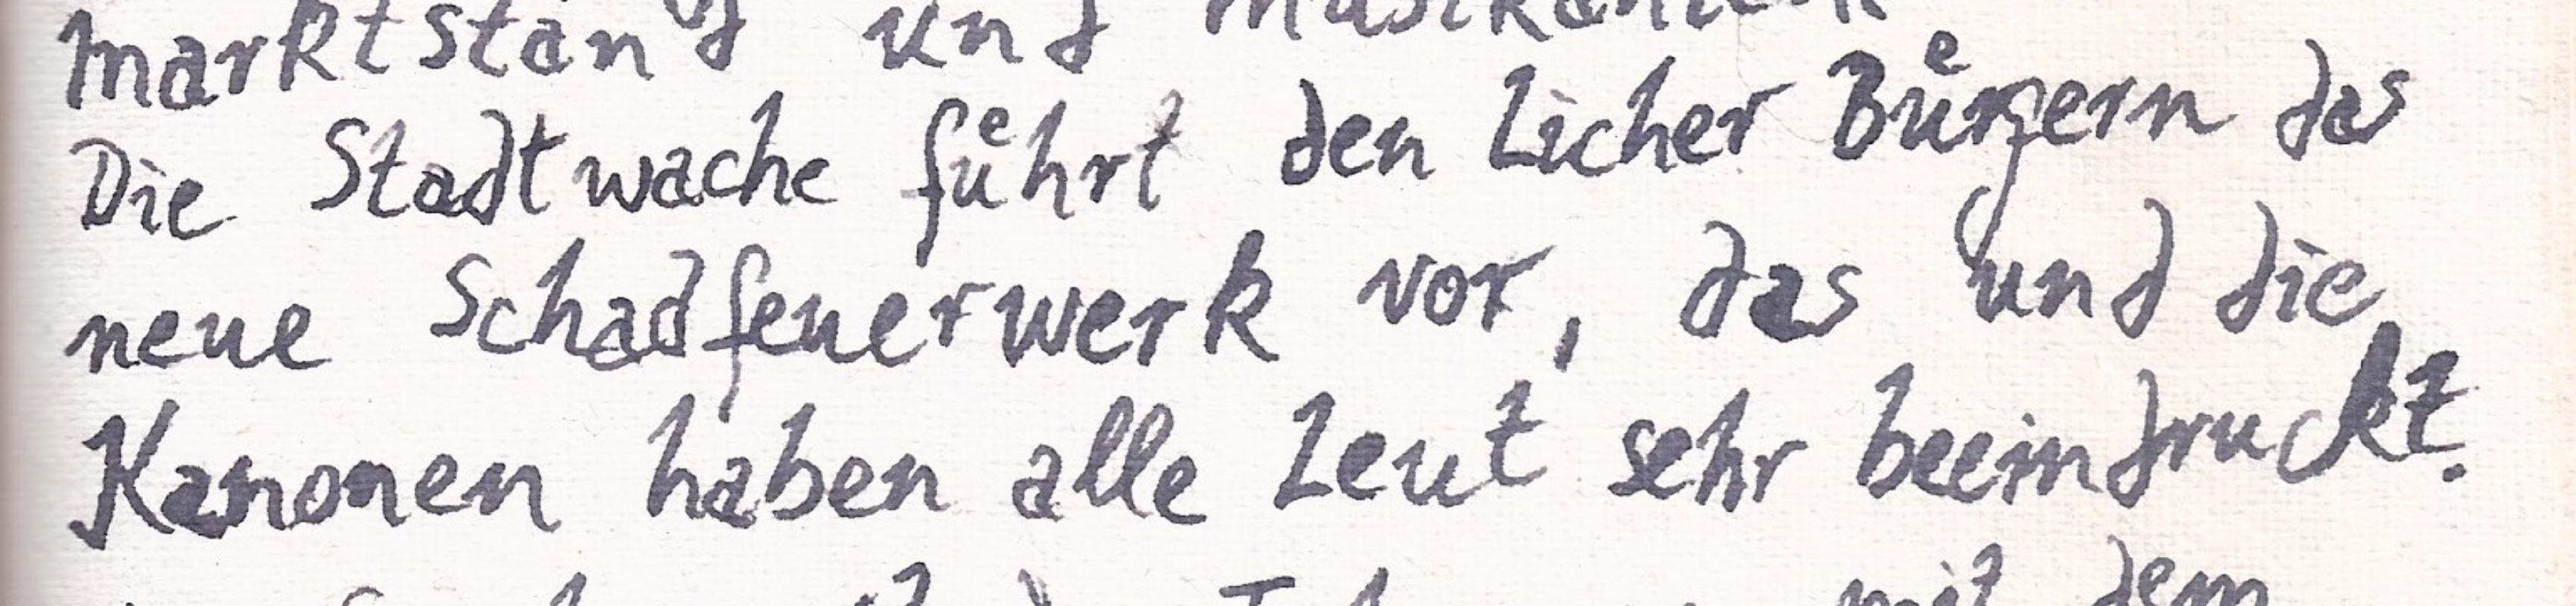 marktstand und Musikanten
Die Stadtwache fuͤhrt den Licher Buͤrgern das
neue Schadfeuerwerk vor, das und die
Kanonen haben alle Leut sehr beeindruckt.
mit dem